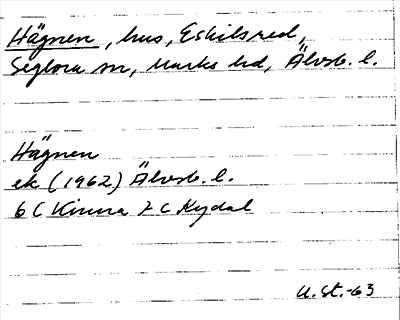 Hägnen, hus, Eskilsred,
Seglora sn, Marks hd, Älvsb. l.
Hägnen
ek (1962) Älvsb. l.
6 C Kinna 7 C Kydal
U. St. -63